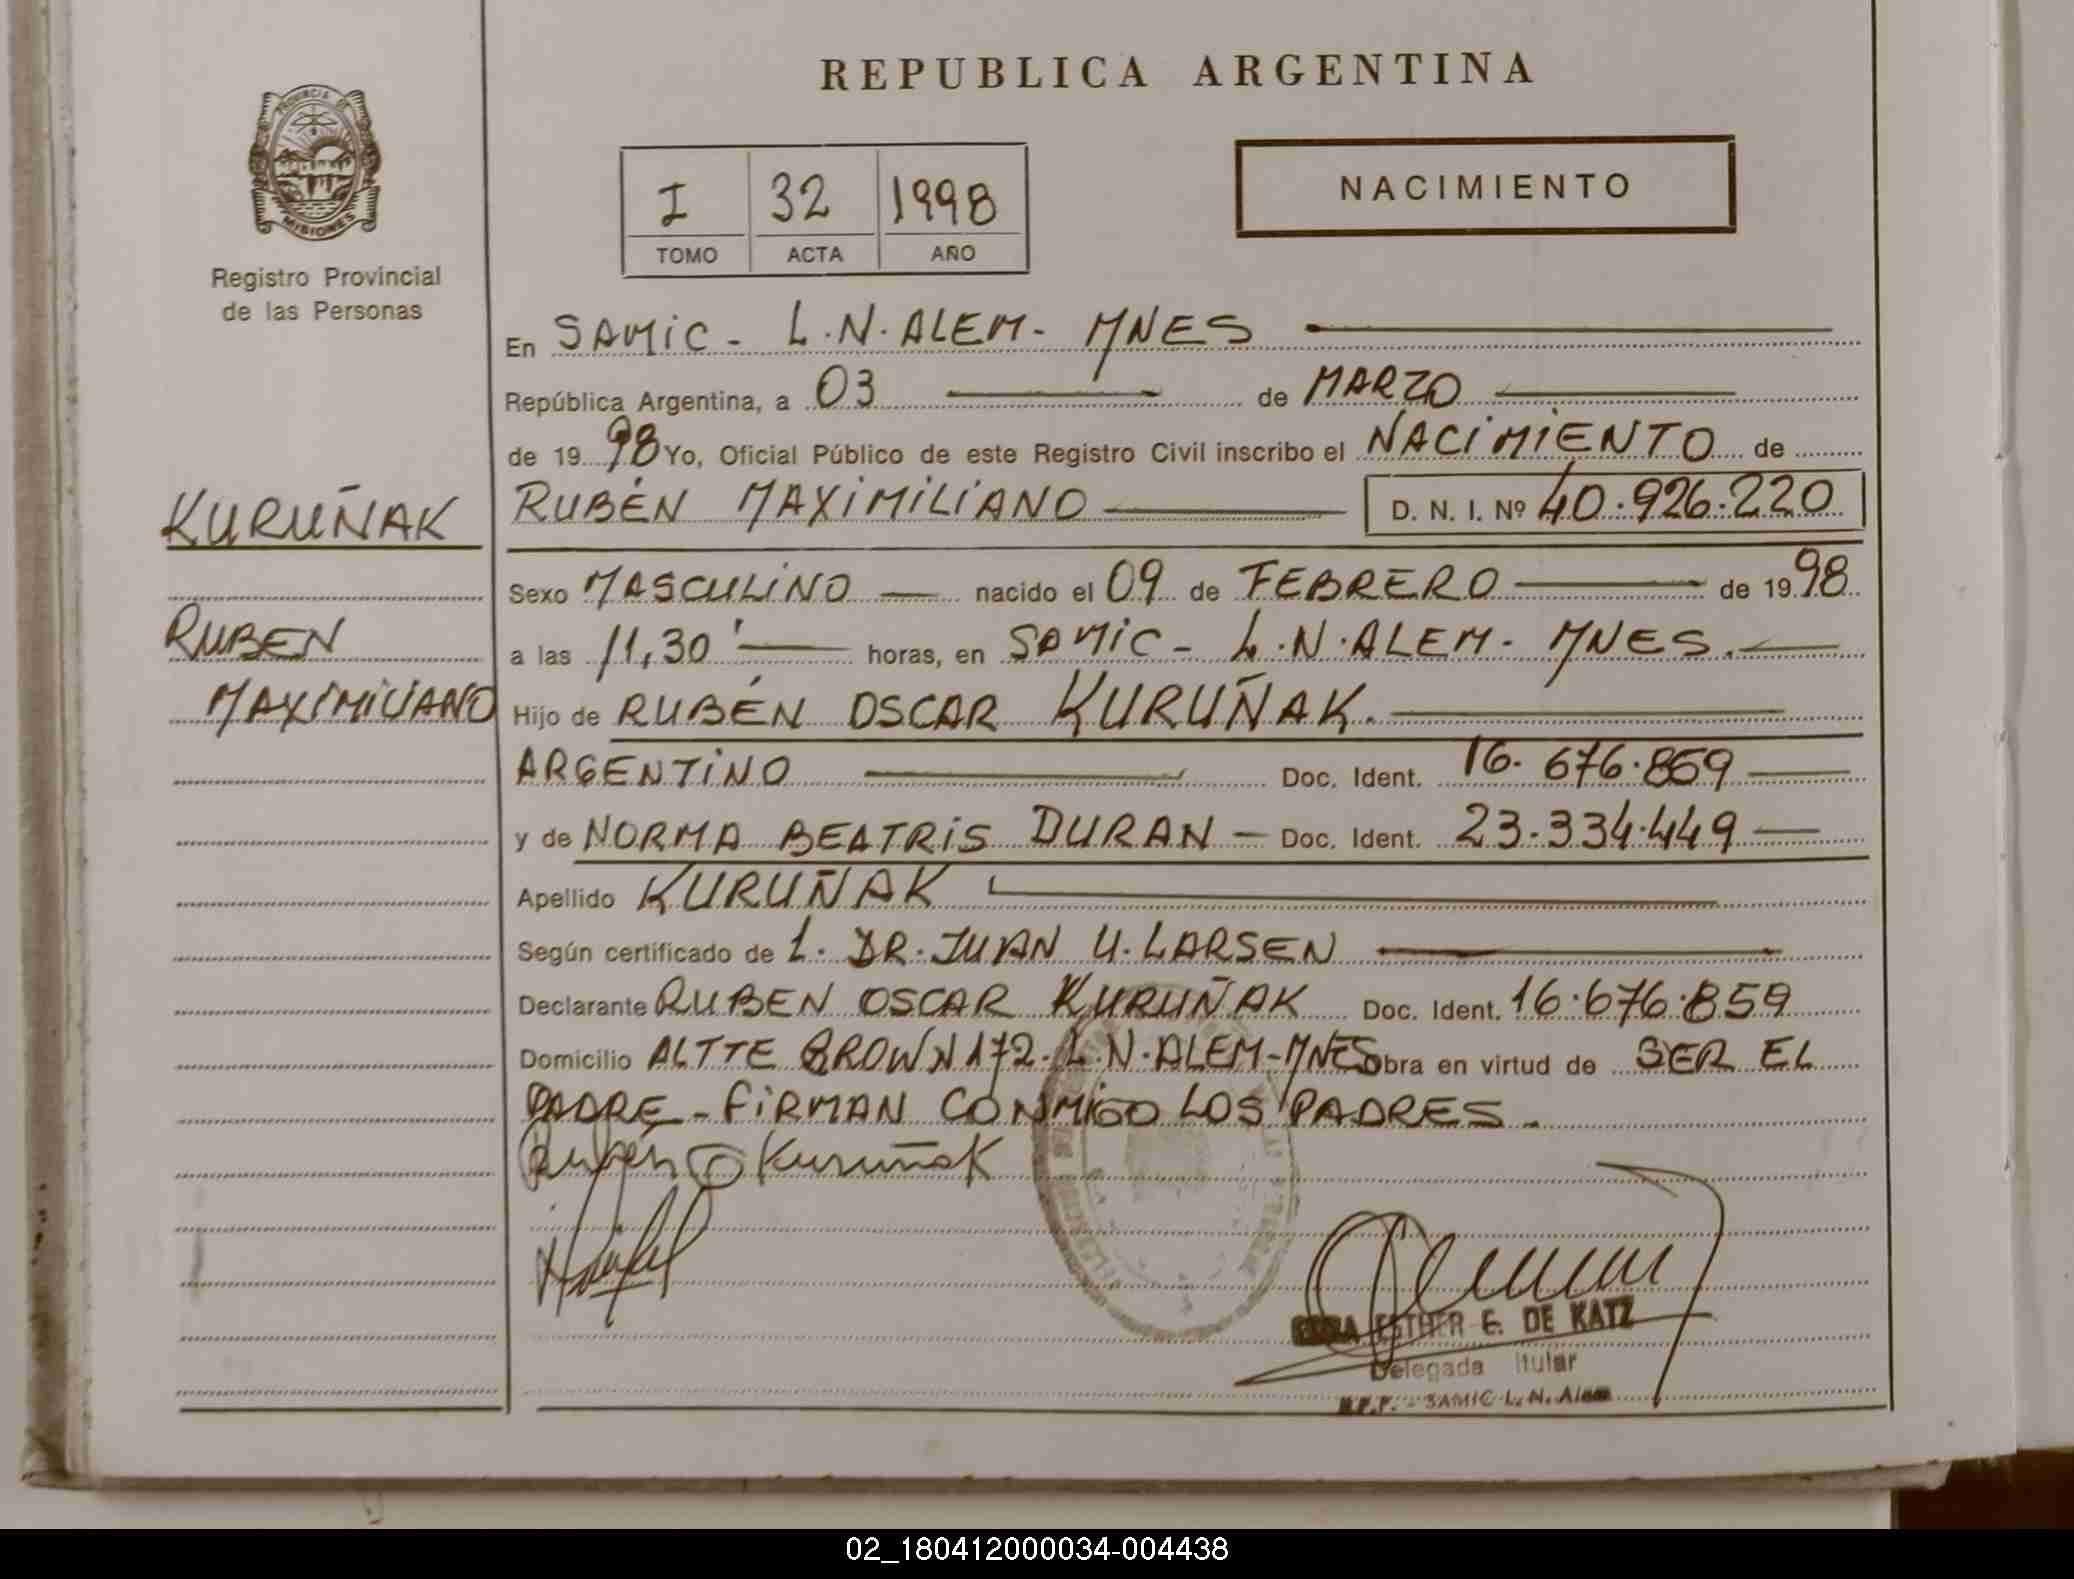 REPUBLICA ARGENTINA
PROVINCIA DE
MISIONES
Registro Provincial
de las Personas
I 32 1998
TOMO ACTA AÑO
NACIMIENTO
En SAMIC - L.N. ALEM - MNES
República Argentina, a 03 de MARZO
de 1998 Yo, Oficial Público de este Registro Civil inscribo el NACIMIENTO de
KURUÑAK
RUBÉN MAXIMILIANO D. N. I. Nº 40.926.220
Sexo MASCULINO nacido el 09 de FEBRERO de 1998
RUBEN
a las 11,30' horas, en SAMIC - L.N. ALEM - MNES.
MAXIMILIANO
Hijo de RUBÉN OSCAR KURUÑAK.
ARGENTINO Doc. Ident. 16.676.859
y de NORMA BEATRIS DURAN - Doc. Ident. 23.334.449
Apellido KURUÑAK
Según certificado de L. DR. JUAN U. LARSEN
Declarante RUBEN OSCAR KURUÑAK Doc. Ident. 16.676.859
Domicilio ALTTE BROWN 172. L.N. ALEM - MNES Obra en virtud de SER EL
PADRE - FIRMAN CONMIGO LOS PADRES.
Rubén O Kuruñak
ESTHER E. DE KATZ
Delegada Titular
SAMIC L. N. Alem
02_180412000034-004438